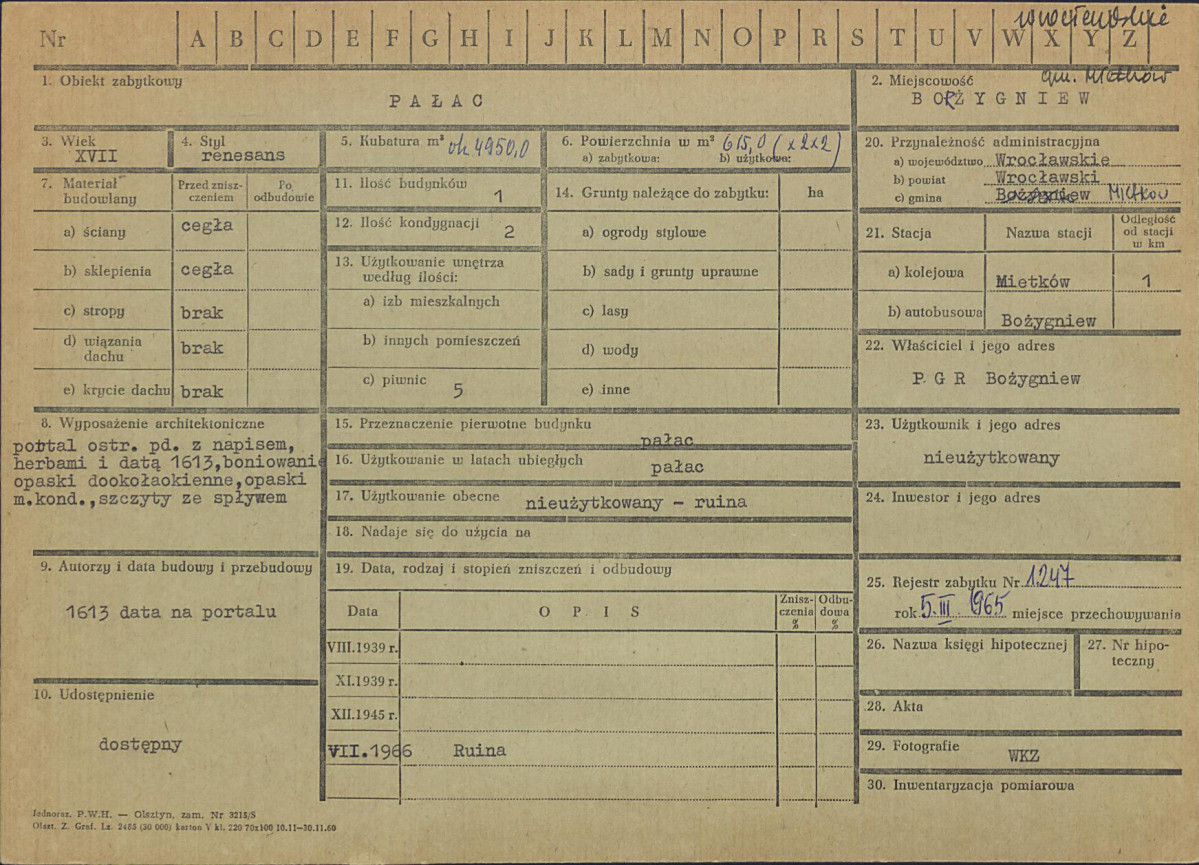 wrocławskie
Nr A B C D E F G H I J K L M N O P R S T U V W X Y Z
1. Obiekt zabytkowy
PAŁAC
2. Miejscowość gm. Mietków
BORZYGNIEW
3. Wiek
XVII
4. Styl
renesans
5. Kubatura m³ ok 4950,0
6. Powierzchnia w m² 615,0 (x2x2)
a) zabytkowa: b) użytkowa:
7. Materiał budowlany
Przed zniszczeniem
Po odbudowie
a) ściany cegła
b) sklepienia cegła
c) stropy brak
d) wiązania dachu brak
e) krycie dachu brak
8. Wyposażenie architektoniczne
portal ostr. pd. z napisem,
herbami i datą 1613,boniowanie
opaski dookołaokienne,opaski
m.kond.,szczyty ze spływem
9. Autorzy i data budowy i przebudowy
1613 data na portalu
10. Udostępnienie
dostępny
11. Ilość budynków
1
12. Ilość kondygnacji
2
13. Użytkowanie wnętrza
według ilości:
a) izb mieszkalnych
b) innych pomieszczeń
c) piwnic
5
14. Grunty należące do zabytku: ha
a) ogrody stylowe
b) sady i grunty uprawne
c) lasy
d) wody
e) inne
15. Przeznaczenie pierwotne budynku
pałac
16. Użytkowanie w latach ubiegłych
pałac
17. Użytkowanie obecne nieużytkowany - ruina
18. Nadaje się do użycia na
19. Data, rodzaj i stopień zniszczeń i odbudowy
Data OPIS Zniszczenia % Odbudowa %
VIII.1939 r.
XI.1939 r.
XII.1945 r.
VII.1966 Ruina
20. Przynależność administracyjna
a) województwo Wrocławskie
b) powiat Wrocławski
c) gmina Bożygniew Mietków
21. Stacja Nazwa stacji Odległość od stacji w km
a) kolejowa Mietków 1
b) autobusowa Bożygniew
22. Właściciel i jego adres
P G R Bożygniew
23. Użytkownik i jego adres
nieużytkowany
24. Inwestor i jego adres
25. Rejestr zabytku Nr 1247
rok 5.III.1965 miejsce przechowywania
26. Nazwa księgi hipotecznej
27. Nr hipoteczny
28. Akta
29. Fotografie
WKZ
30. Inwentaryzacja pomiarowa
Jednoraz. P.W.H. — Olsztyn, zam. Nr 3215/S
Olszt. Z. Graf. Lz. 2485 (30 000) karton V kl. 220 70x100 10.11—30.11.60